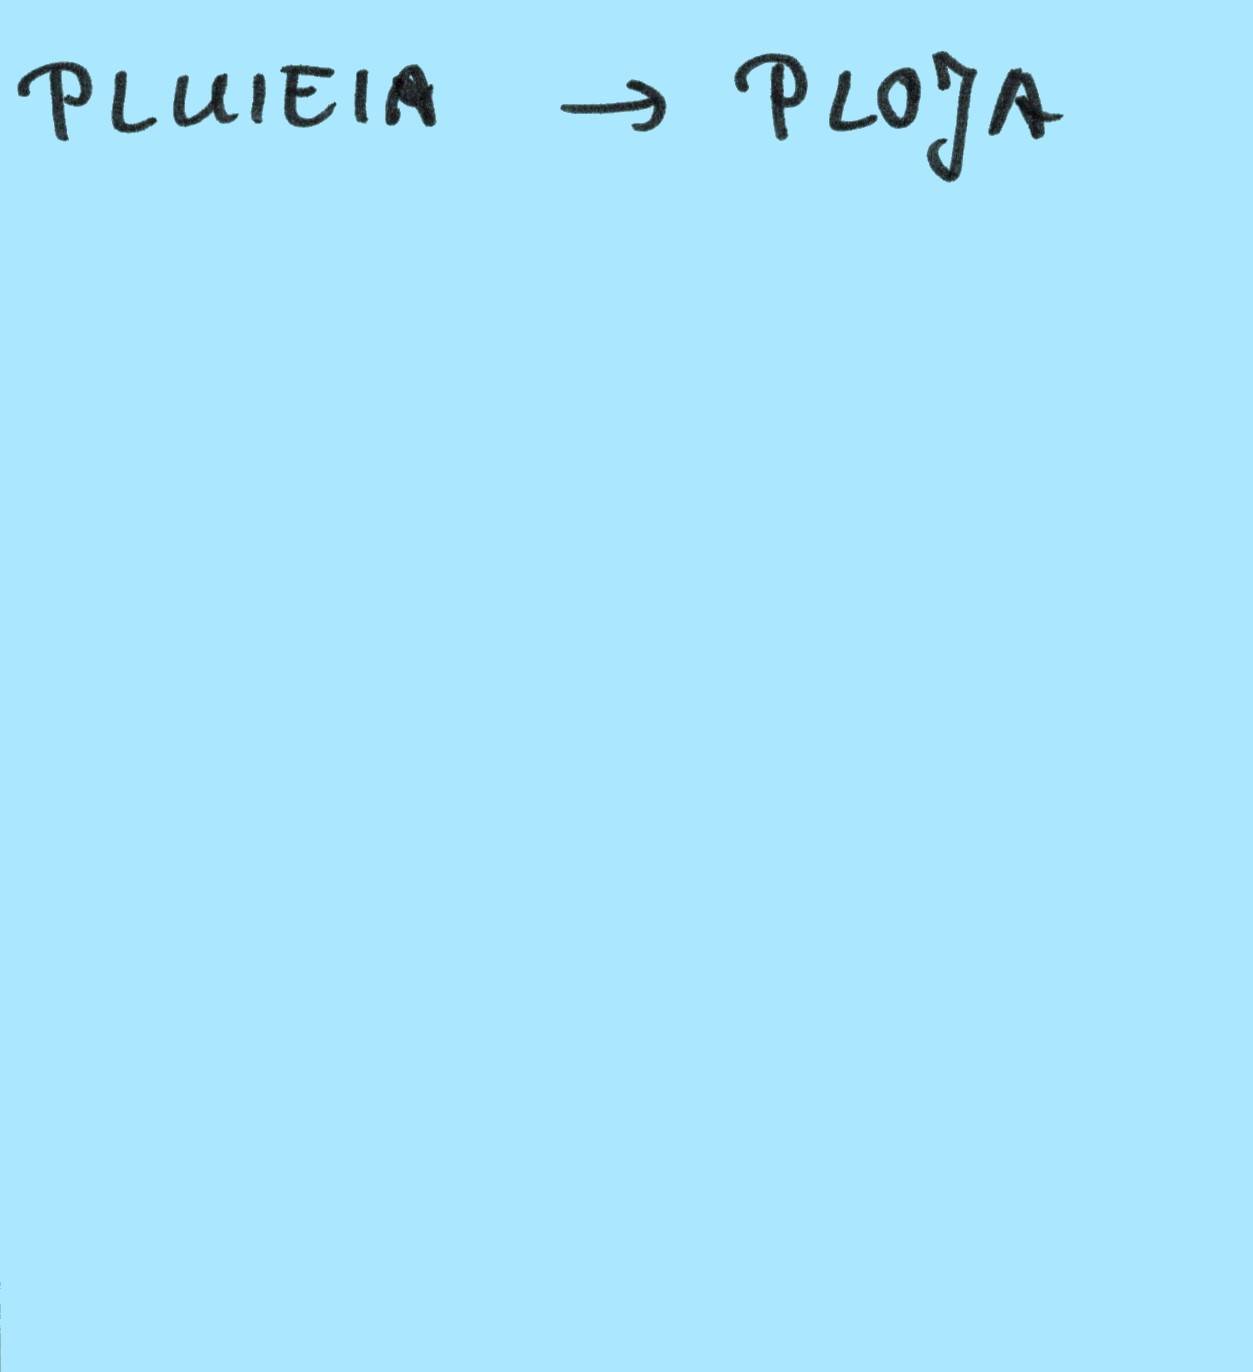 PLUIEIA → PLOJA